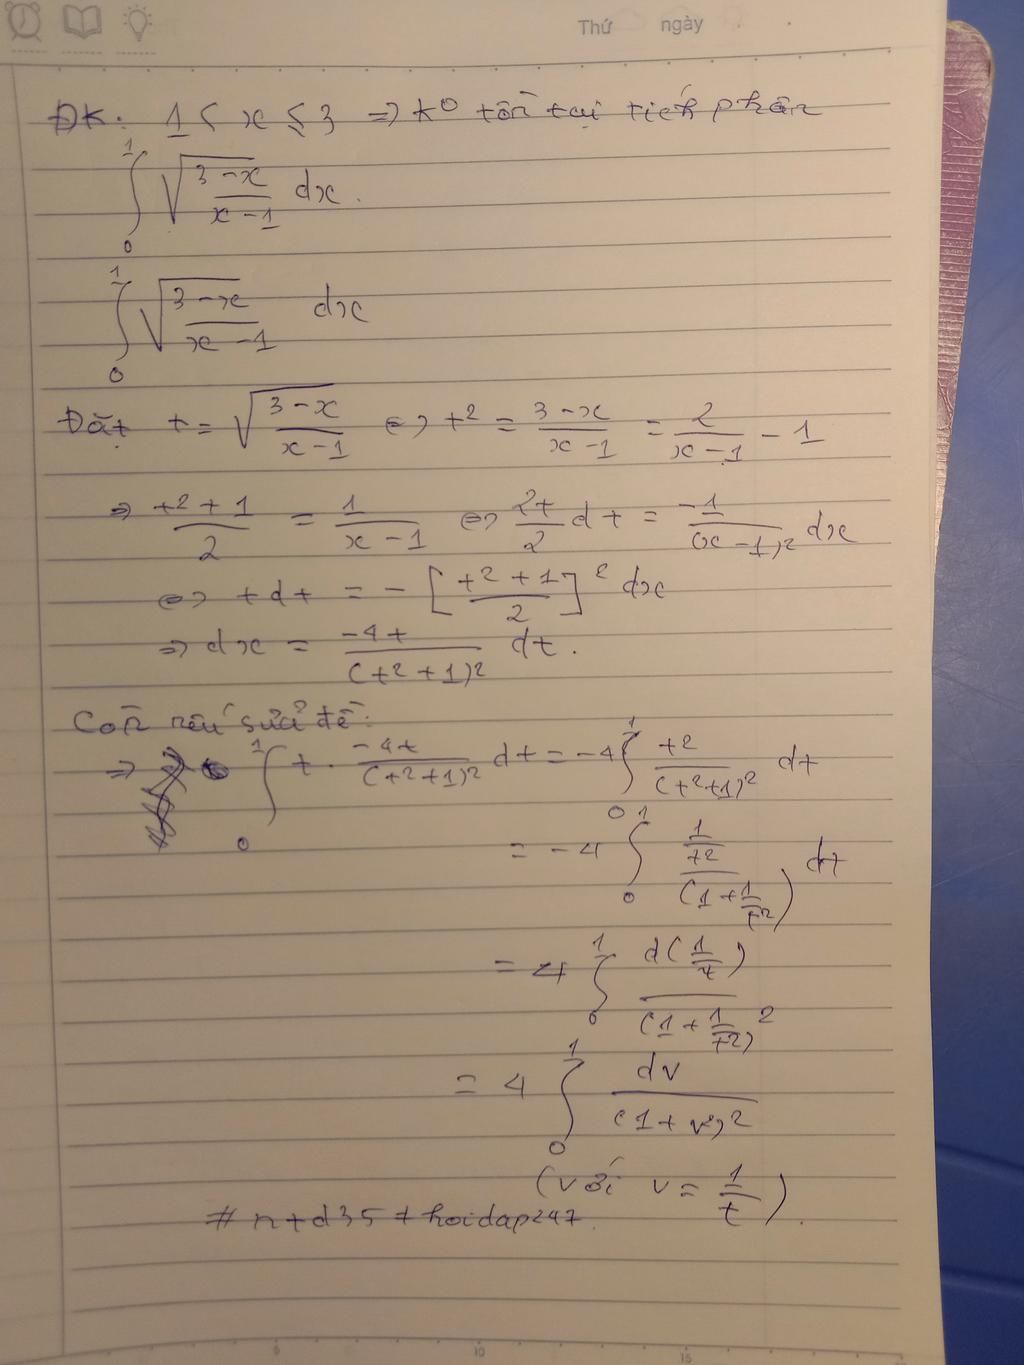 Thứ ngày
ĐK: 1 < x ≤ 3 => k⁰ tồn tại tích phân
∫₀¹ √((3-x)/(x-1)) dx.
∫₀¹ √((3-x)/(x-1)) dx
Đặt t = √((3-x)/(x-1)) <=> t² = (3-x)/(x-1) = 2/(x-1) - 1
=> (t²+1)/2 = 1/(x-1) <=> 2t/2 dt = -1/(x-1)² dx
<=> tdt = -[(t²+1)/2]² dx
=> dx = -4t/(t²+1)² dt.
Còn nếu sửa đề:
=> ∫₀¹ t · -4t/(t²+1)² dt = -4 ∫₀¹ t²/(t²+1)² dt
= -4 ∫₀¹ (1/t²)/(1+1/t²) dt
= 4 ∫₀¹ d(1/t)/(1+1/t²)²
= 4 ∫₀¹ dv/(1+v²)²
(với v = 1/t).
# ntd35 + hoidap247.
5 10 15